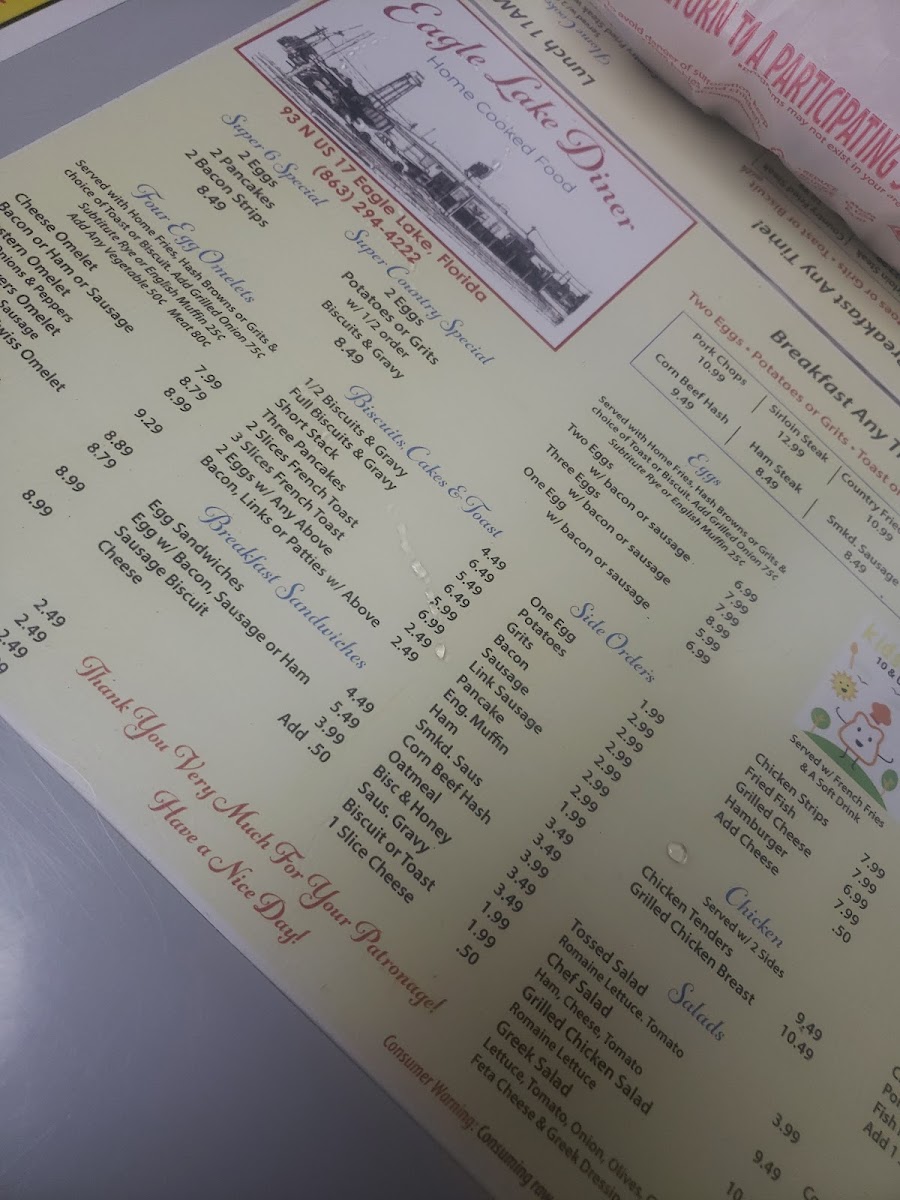 Eagle Lake Diner
Home Cooked Food
93 N US 17 Eagle Lake, Florida
(863) 294-4222
Super 6 Special
2 Eggs
2 Pancakes
2 Bacon Strips
8.49
Super Country Special
2 Eggs
Potatoes or Grits
w/ 1/2 order
Biscuits & Gravy
8.49
Four Egg Omelets
Served with Home Fries, Hash Browns or Grits &
choice of Toast or Biscuit. Add Grilled Onion 75¢
Subtitute Rye or English Muffin 25¢
Add Any Vegetable 50¢ Meat 80¢
Cheese Omelet 7.99
Bacon or Ham or Sausage 8.79
stern Omelet 8.99
Onions & Peppers
ers Omelet 9.29
Sausage
wiss Omelet 8.89
8.79
8.99
8.99
2.49
2.49
2.49
Biscuits Cakes & Toast
1/2 Biscuits & Gravy 4.49
Full Biscuits & Gravy 6.49
Short Stack 5.49
Three Pancakes 6.49
2 Slices French Toast 5.99
3 Slices French Toast 6.99
2 Eggs w/ Any Above 2.49
Bacon, Links or Patties w/ Above 2.49
Breakfast Sandwiches
Egg Sandwiches 4.49
Egg w/ Bacon, Sausage or Ham 5.49
Sausage Biscuit 3.99
Cheese Add .50
Thank You Very Much For Your Patronage!
Have a Nice Day!
Breakfast Any T
Two Eggs • Potatoes or Grits • Toast or
Pork Chops
10.99
Sirloin Steak
12.99
Country Frie
10.99
Corn Beef Hash
9.49
Ham Steak
8.49
Smkd. Sausage
8.49
Eggs
Served with Home Fries, Hash Browns or Grits &
choice of Toast or Biscuit. Add Grilled Onion 75¢
Subtitute Rye or English Muffin 25¢
Two Eggs 6.99
w/ bacon or sausage 7.99
Three Eggs 7.99
w/ bacon or sausage 8.99
One Egg 5.99
w/ bacon or sausage 6.99
Side Orders
One Egg 1.99
Potatoes 2.99
Grits 2.99
Bacon 2.99
Sausage 2.99
Link Sausage 2.99
Pancake 2.99
Eng. Muffin 1.99
Ham 3.49
Smkd. Saus 3.49
Corn Beef Hash 3.99
Oatmeal 3.49
Bisc & Honey 3.49
Saus. Gravy 1.99
Biscuit or Toast 1.99
1 Slice Cheese .50
kid
10 &
Served w/ French Fries
& A Soft Drink
Chicken Strips 7.99
Fried Fish 7.99
Grilled Cheese 6.99
Hamburger 7.99
Add Cheese .50
Chicken
Served w/ 2 Sides
Chicken Tenders 9.49
Grilled Chicken Breast 10.49
Salads
Tossed Salad 3.99
Romaine Lettuce, Tomato
Chef Salad 9.49
Ham, Cheese, Tomato
Grilled Chicken Salad 10
Romaine Lettuce
Greek Salad
Lettuce, Tomato, Onion, Olives,
Feta Cheese & Greek Dressin
Consumer Warning: Consuming raw
Fish
Add 1
Lunch 11AM
TURN TO A PARTICIPATING
may not exist in your
akfast Any Time!